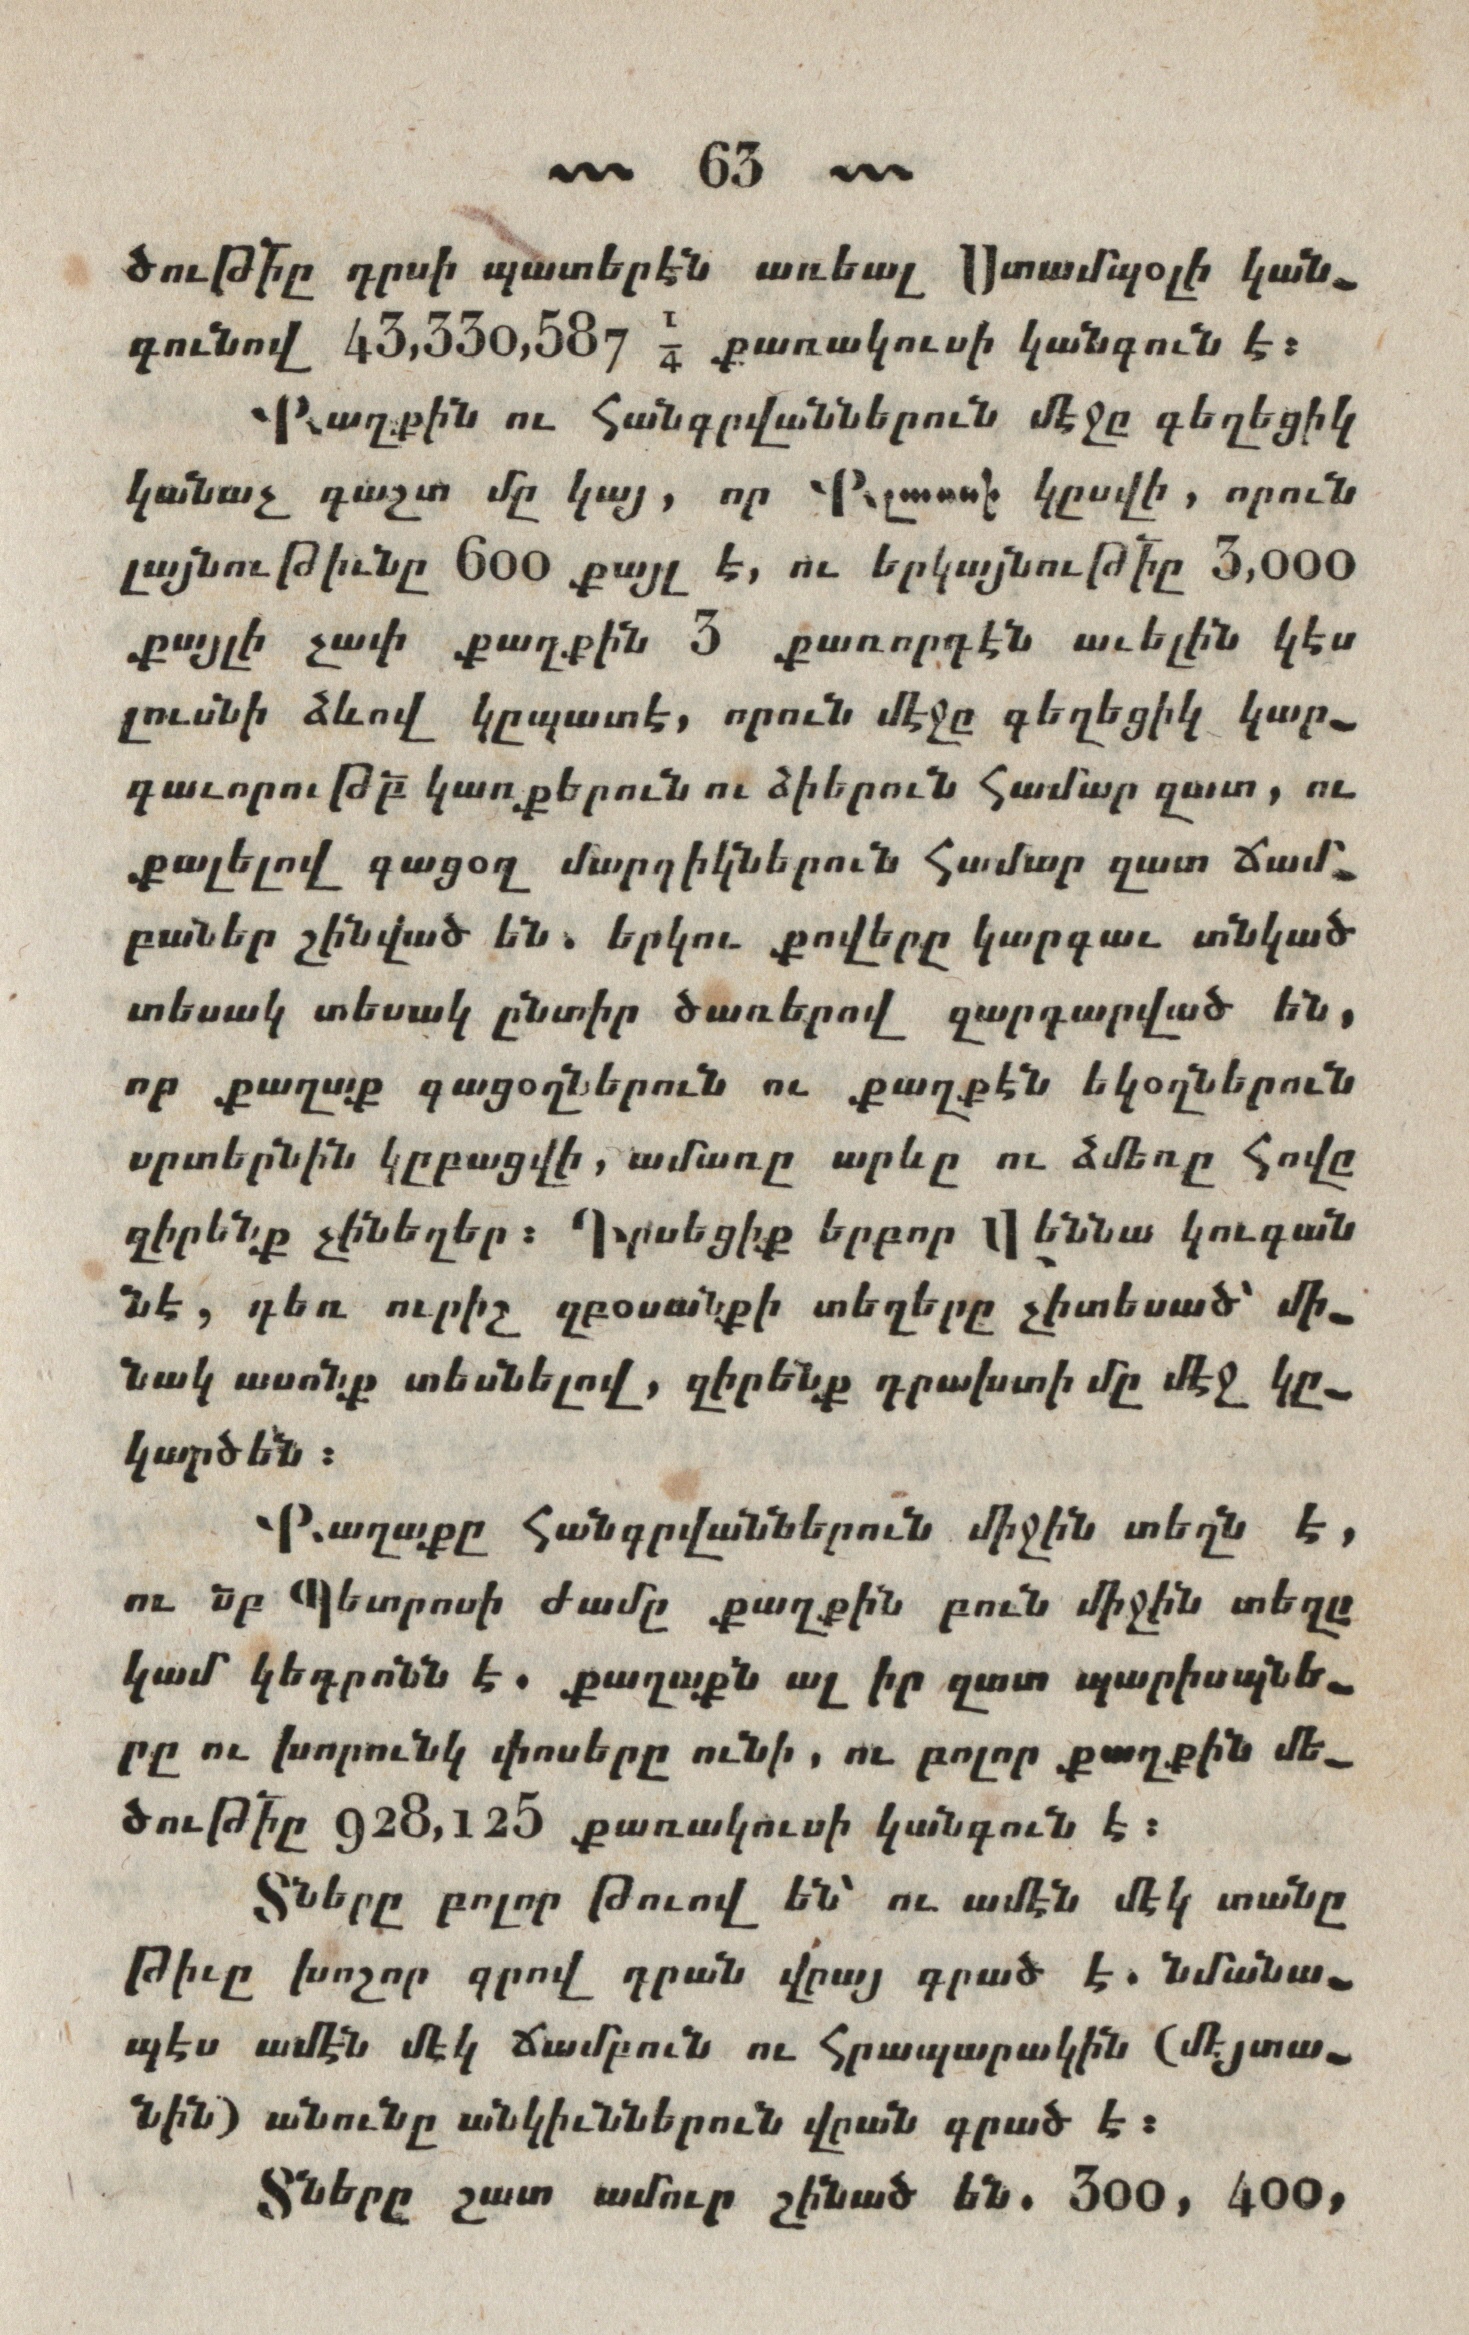 63
ծութի՛ը դրսի պատերէն առեալ Ստամպօլի կան֊
գունով 43,330,587 1/4 քառակուսի կանգուն է։
Քաղքին ու հանգրվաններուն մէջը գեղեցիկ
կանաչ դաշտ մը կայ, որ կըսվի, որուն
լայնութիւնը 600 քայլ է, ու երկայնութի՛ը 3,000
քայլի չափ քաղքին 3 քառորդէն աւելին կէս
լուսնի ձևով կըպատէ, որուն մէջը գեղեցիկ կար֊
գաւորութբ՟ կառքերուն ու ձիերուն համար զատ, ու
քալելով գացօղ մարդիկներուն համար զատ ճամ֊
բաներ շինված են. երկու քովերը կարգաւ տնկած
տեսակ տեսակ ընտիր ծառերով զարդարված են,
որ քաղաք գացօղներուն ու քաղքէն եկօղներուն
սրտերնին կըբացվի, ամառը արևը ու ձմեռը հովը
զիրենք չինեղեր։ Դրսեցիք երբոր Վեննա կուգան
նէ, դեռ ուրիշ զբօսանքի տեղերը չիտեսած՝ մի֊
նակ ասոնք տեսնելով, զիրենք դրախտի մը մէջ կը֊
կարծեն։
Քաղաքը հանգրվաններուն միջին տեղն է,
ու սբ՟ Պետրոսի ժամը քաղքին բուն միջին տեղը
կամ կեդրոնն է. քաղաքն ալ իր զատ պարիսպնե֊
րը ու խորունկ փոսերը ունի, ու բոլոր քաղքին մե֊
ծութի՛ը 928,125 քառակուսի կանգուն է։
Տները բոլոր թուով են՝ ու ամէն մէկ տանը
թիւը խոշոր գրով դրան վրայ գրած է. նմանա֊
պէս ամէն մէկ ճամբուն ու հրապարակին (մէյտա֊
նին) անունը անկիւններուն վրան գրած է։
Տները շատ ամուր շինած են. 300, 400,